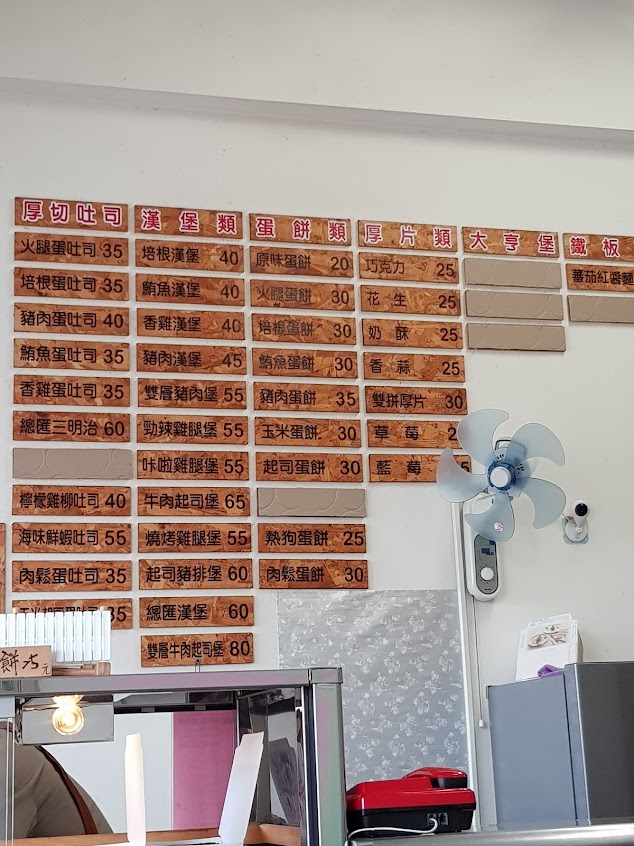 厚切吐司
火腿蛋吐司 35
培根蛋吐司 35
豬肉蛋吐司 40
鮪魚蛋吐司 35
香雞蛋吐司 35
總匯三明治 60
檸檬雞柳吐司 40
海味鮮蝦吐司 55
肉鬆蛋吐司 35
35
漢堡類
培根漢堡 40
鮪魚漢堡 40
香雞漢堡 40
豬肉漢堡 45
雙層豬肉堡 55
勁辣雞腿堡 55
咔啦雞腿堡 55
牛肉起司堡 65
燒烤雞腿堡 55
起司豬排堡 60
總匯漢堡 60
雙層牛肉起司堡 80
蛋餅類
原味蛋餅 20
火腿蛋餅 30
培根蛋餅 30
鮪魚蛋餅 30
豬肉蛋餅 35
玉米蛋餅 30
起司蛋餅 30
熱狗蛋餅 25
肉鬆蛋餅 30
厚片類
巧克力 25
花生 25
奶酥 25
香蒜 25
雙拼厚片 30
草莓 2
藍莓 25
大亨堡
鐵板
蕃茄紅醬麵
餅
元